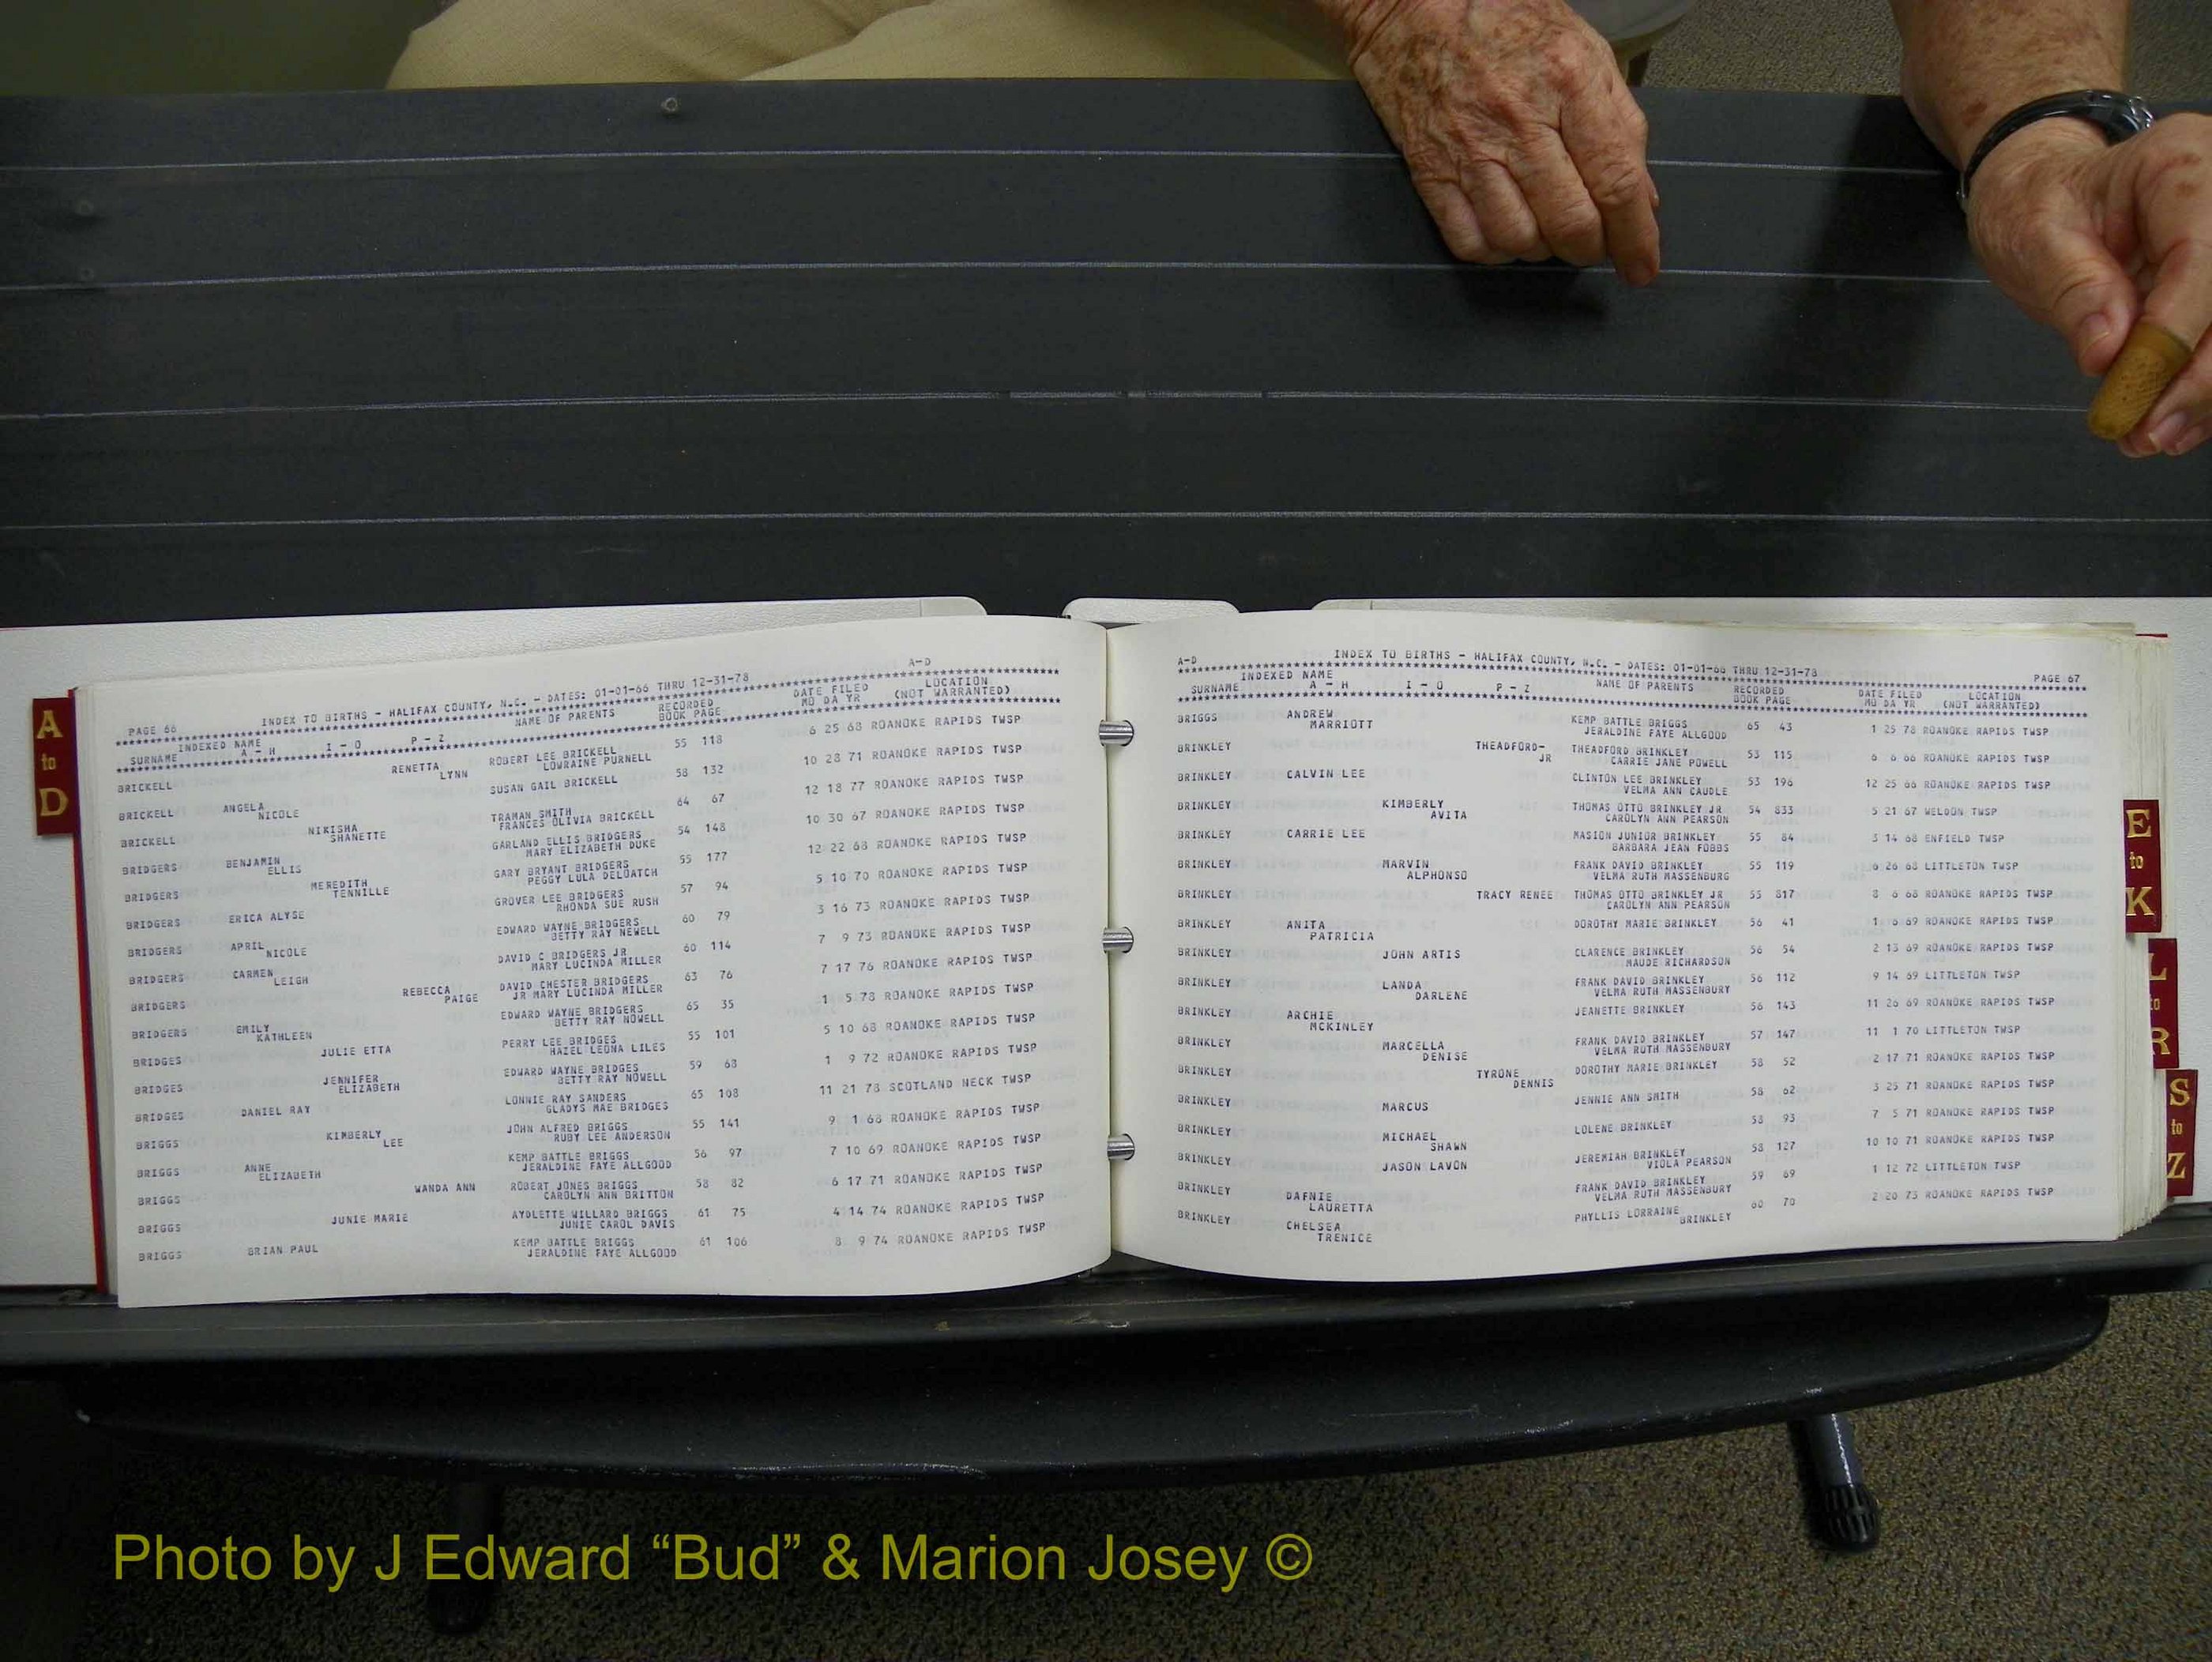 A
to
D
A-D
PAGE 66 INDEX TO BIRTHS - HALIFAX COUNTY, N.C. - DATES: 01-01-66 THRU 12-31-78
INDEXED NAME RECORDED DATE FILED LOCATION
SURNAME A - H I - O P - Z NAME OF PARENTS BOOK PAGE MO DA YR (NOT WARRANTED)
BRICKELL RENETTA ROBERT LEE BRICKELL 55 118 6 25 68 ROANOKE RAPIDS TWSP
LYNN LORRAINE PURNELL
BRICKELL ANGELA SUSAN GAIL BRICKELL 58 132 10 28 71 ROANOKE RAPIDS TWSP
NICOLE
BRICKELL NIKISHA TRAMAN SMITH 64 67 12 18 77 ROANOKE RAPIDS TWSP
SHANETTE FRANCES OLIVIA BRICKELL
BRIDGERS BENJAMIN GARLAND ELLIS BRIDGERS 54 148 10 30 67 ROANOKE RAPIDS TWSP
ELLIS MARY ELIZABETH DUKE
BRIDGERS MEREDITH GARY BRYANT BRIDGERS 55 177 12 22 68 ROANOKE RAPIDS TWSP
TENNILLE PEGGY LULA DELOATCH
BRIDGERS ERICA ALYSE GROVER LEE BRIDGERS 57 94 5 10 70 ROANOKE RAPIDS TWSP
RHONDA SUE RUSH
BRIDGERS APRIL EDWARD WAYNE BRIDGERS 60 79 3 16 73 ROANOKE RAPIDS TWSP
NICOLE BETTY RAY NEWELL
BRIDGERS CARMEN DAVID C BRIDGERS JR 60 114 7 9 73 ROANOKE RAPIDS TWSP
LEIGH MARY LUCINDA MILLER
BRIDGERS REBECCA DAVID CHESTER BRIDGERS 63 76 7 17 76 ROANOKE RAPIDS TWSP
PAIGE JR MARY LUCINDA MILLER
BRIDGERS EMILY EDWARD WAYNE BRIDGERS 65 35 1 5 78 ROANOKE RAPIDS TWSP
KATHLEEN BETTY RAY NOWELL
BRIDGES JULIE ETTA PERRY LEE BRIDGES 55 101 5 10 68 ROANOKE RAPIDS TWSP
HAZEL LEONA LILES
BRIDGES JENNIFER EDWARD WAYNE BRIDGES 59 68 1 9 72 ROANOKE RAPIDS TWSP
ELIZABETH BETTY RAY NOWELL
BRIDGES DANIEL RAY LONNIE RAY SANDERS 65 108 11 21 78 SCOTLAND NECK TWSP
GLADYS MAE BRIDGES
BRIGGS KIMBERLY JOHN ALFRED BRIGGS 55 141 9 1 68 ROANOKE RAPIDS TWSP
LEE RUBY LEE ANDERSON
BRIGGS ANNE KEMP BATTLE BRIGGS 56 97 7 10 69 ROANOKE RAPIDS TWSP
ELIZABETH JERALDINE FAYE ALLGOOD
BRIGGS WANDA ANN ROBERT JONES BRIGGS 58 82 6 17 71 ROANOKE RAPIDS TWSP
CAROLYN ANN BRITTON
BRIGGS JUNIE MARIE AYDLETTE WILLARD BRIGGS 61 75 4 14 74 ROANOKE RAPIDS TWSP
JUNIE CAROL DAVIS
BRIGGS BRIAN PAUL KEMP BATTLE BRIGGS 61 106 8 9 74 ROANOKE RAPIDS TWSP
JERALDINE FAYE ALLGOOD
A-D INDEX TO BIRTHS - HALIFAX COUNTY, N.C. - DATES: 01-01-66 THRU 12-31-78 PAGE 67
INDEXED NAME RECORDED DATE FILED LOCATION
SURNAME A - H I - O P - Z NAME OF PARENTS BOOK PAGE MO DA YR (NOT WARRANTED)
BRIGGS ANDREW KEMP BATTLE BRIGGS 65 43 1 25 78 ROANOKE RAPIDS TWSP
MARRIOTT JERALDINE FAYE ALLGOOD
BRINKLEY THEADFORD- THEADFORD BRINKLEY 53 115 6 6 66 ROANOKE RAPIDS TWSP
JR CARRIE JANE POWELL
BRINKLEY CALVIN LEE CLINTON LEE BRINKLEY 53 196 12 25 66 ROANOKE RAPIDS TWSP
VELMA ANN CAUDLE
BRINKLEY KIMBERLY THOMAS OTTO BRINKLEY JR 54 833 5 21 67 WELDON TWSP
AVITA CAROLYN ANN PEARSON
BRINKLEY CARRIE LEE MASION JUNIOR BRINKLEY 55 84 3 14 68 ENFIELD TWSP
BARBARA JEAN FOBBS
BRINKLEY MARVIN FRANK DAVID BRINKLEY 55 119 6 26 68 LITTLETON TWSP
ALPHONSO VELMA RUTH MASSENBURG
BRINKLEY TRACY RENEE THOMAS OTTO BRINKLEY JR 55 817 8 6 68 ROANOKE RAPIDS TWSP
CAROLYN ANN PEARSON
BRINKLEY ANITA DOROTHY MARIE BRINKLEY 56 41 1 6 69 ROANOKE RAPIDS TWSP
PATRICIA
BRINKLEY JOHN ARTIS CLARENCE BRINKLEY 56 54 2 13 69 ROANOKE RAPIDS TWSP
MAUDE RICHARDSON
BRINKLEY LANDA FRANK DAVID BRINKLEY 56 112 9 14 69 LITTLETON TWSP
DARLENE VELMA RUTH MASSENBURY
BRINKLEY ARCHIE JEANETTE BRINKLEY 56 143 11 26 69 ROANOKE RAPIDS TWSP
MCKINLEY
BRINKLEY MARCELLA FRANK DAVID BRINKLEY 57 147 11 1 70 LITTLETON TWSP
DENISE VELMA RUTH MASSENBURY
BRINKLEY TYRONE DOROTHY MARIE BRINKLEY 58 52 2 17 71 ROANOKE RAPIDS TWSP
DENNIS
BRINKLEY MARCUS JENNIE ANN SMITH 58 62 3 25 71 ROANOKE RAPIDS TWSP
BRINKLEY MICHAEL LOLENE BRINKLEY 58 93 7 5 71 ROANOKE RAPIDS TWSP
SHAWN
BRINKLEY JASON LAVON JEREMIAH BRINKLEY 58 127 10 10 71 ROANOKE RAPIDS TWSP
VIOLA PEARSON
BRINKLEY DAFNIE FRANK DAVID BRINKLEY 59 69 1 12 72 LITTLETON TWSP
LAURETTA VELMA RUTH MASSENBURY
BRINKLEY CHELSEA PHYLLIS LORRAINE 60 70 2 20 73 ROANOKE RAPIDS TWSP
TRENICE BRINKLEY
E
to
K
L
to
R
S
to
Z
Photo by J Edward “Bud” & Marion Josey ©